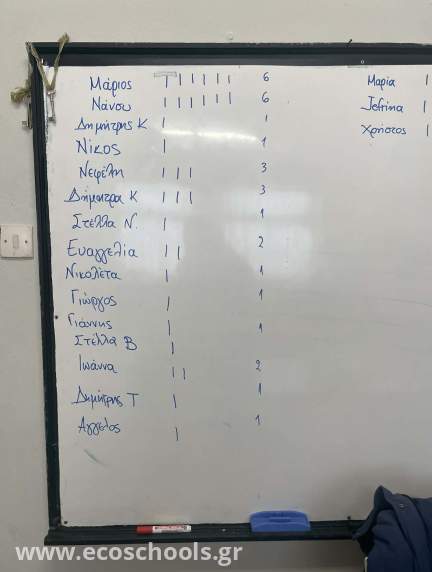 Μάριος | | | | | | 6
Νάνσυ | | | | | | 6
Δημήτρης Κ | 1
Νίκος | 1
Νεφέλη | | | 3
Δήμητρα Κ | | | 3
Στέλλα Ν. | 1
Ευαγγελία | | 2
Νικολέτα | 1
Γιώργος | 1
Γιάννης | 1
Στέλλα Β |
Ιωάννα | | 2
Δημήτρης Τ | 1
Άγγελος | 1
Μαρία |
Jefrina |
Χρήστος |
www.ecoschools.gr